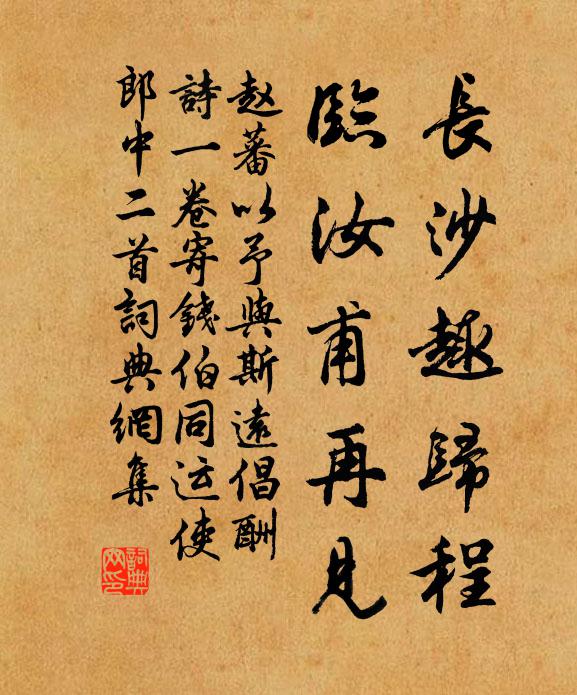 長沙趣歸程
臨汝甫再見
赵蕃以予與斯遠倡酬
詩一卷寄錢伯同运使
郎中二首詞典網集
詞典網印